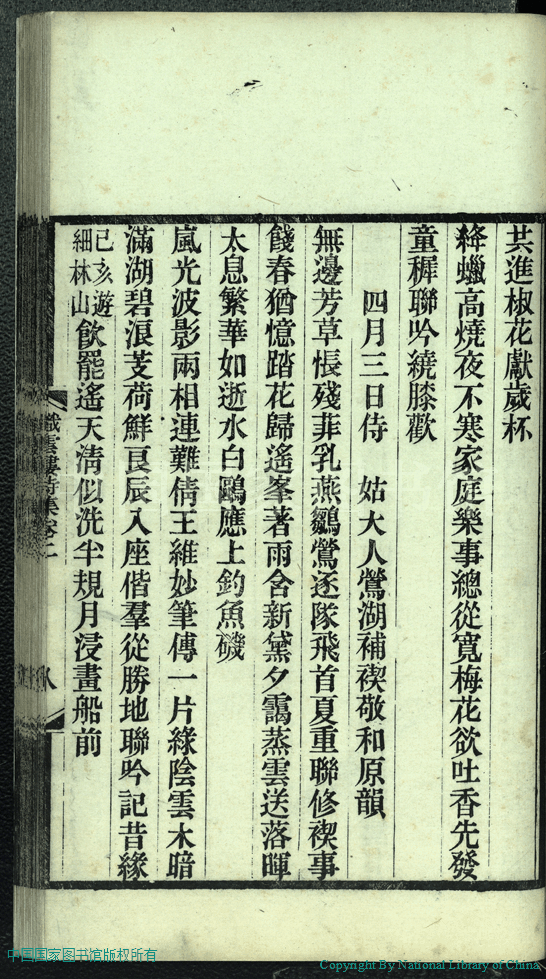 共進椒花獻歲杯
絳蠟高燒夜不寒家庭樂事總從寬梅花欲吐香先發
童穉聯吟繞膝歡
四月三日侍　姑大人鶯湖補禊敬和原韻
無邊芳草悵殘菲乳燕鶵鶯逐隊飛首夏重聯修禊事
餞春猶憶踏花歸遙峯著雨含新黛夕靄蒸雲送落暉
太息繁華如逝水白鷗應上釣魚磯
嵐光波影兩相連難倩王維妙筆傳一片綠陰雲木暗
滿湖碧浪芰荷鮮良辰入座偕羣從勝地聯吟記昔緣
己亥遊
細林山
飲罷遙天清似洗半規月浸畫船前
織雲樓詩集卷二
八
中国国家图书馆版权所有
Copyright By National Library of China